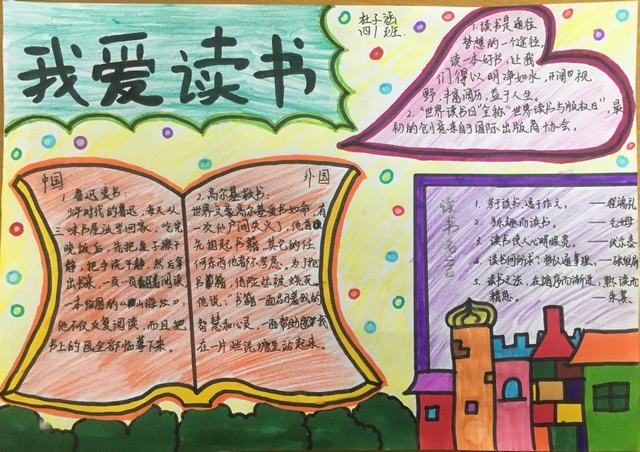 我爱读书
杜子涵
四1班
1.读书是通往
梦想的一个途径,
读一本好书,让我
们得以明净如水,开阔视
野,丰富阅历,益于人生。
2."世界读书日"全称"世界读书与版权日",最
初的创意来自于国际出版商协会。
中国
1.鲁迅
少年时代的鲁迅,每天从
三味书屋放学回家,吃完
晚饭后,先把桌子擦干
静,把手洗干静,然后拿
出书来,一页一页翻着阅读
一本绘图的《山海经》,
他不仅反复阅读,而且把
书上的图全部临摹下来。
外国
2.高尔基救书:
世界文豪高尔基爱书如命,有
一次他户间失火了,他首
先抱起书籍,其它的任
何东西他都不考虑。为了抢
救书籍,他险些被烧死。
他说:"书籍一面启示着我的
智慧和心灵,一面帮助我
在一片泥塘里站起来。
读书名言
1.穷于读书,逸于作文。——程端礼
2.读书而 ——毛姆
3.读书使人心明眼亮。——伏尔泰
4.读书何所求?将以通事理。——张维屏
5.读书之法,在循序而渐进,熟读而
精思。——朱熹